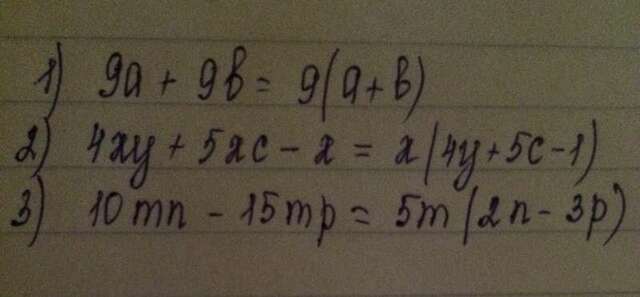 1) 9a + 9b = 9(a+b)
2) 4xy + 5xc - x = x(4y+5c-1)
3) 10mn - 15mp = 5m(2n-3p)